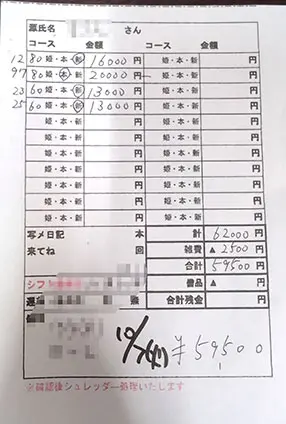 源氏名 さん
コース 金額 コース 金額
12 80 姫・本・新 16000 円 姫・本・新 円
97 80 姫・本・新 20000 円 姫・本・新 円
23 60 姫・本・新 13000 円 姫・本・新 円
25 60 姫・本・新 13000 円 姫・本・新 円
姫・本・新 円 姫・本・新 円
姫・本・新 円 姫・本・新 円
姫・本・新 円 姫・本・新 円
姫・本・新 円 姫・本・新 円
姫・本・新 円 姫・本・新 円
姫・本・新 円 姫・本・新 円
写メ日記 本 計 62000 円
来てね 回 雑費 ▲ 2500 円
合計 59500 円
シフト 備品 ▲ 円
合計残金 円
10/7 ¥59500
※確認後シュレッダー処理いたします